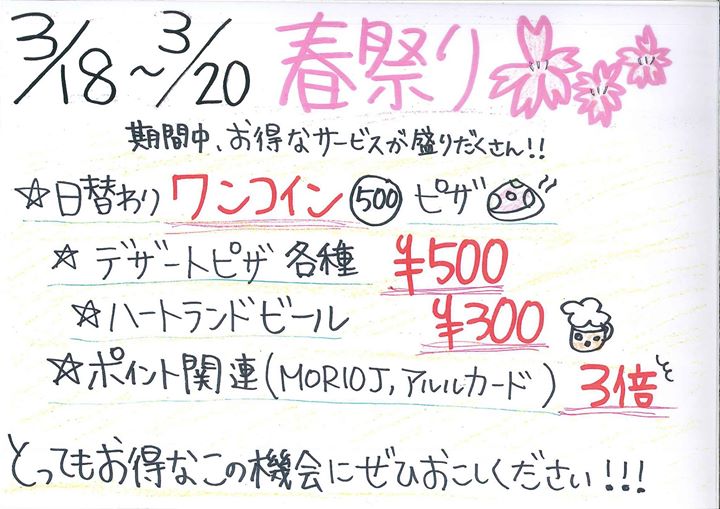 3/18~3/20 春祭り
期間中、お得なサービスが盛りだくさん!!
☆日替わり ワンコイン 500 ピザ
☆ デザートピザ 各種 ¥500
☆ハートランドビール ¥300
☆ポイント関連(MORIOJ,アルルカード) 3倍
とってもお得なこの機会にぜひおこしください!!!